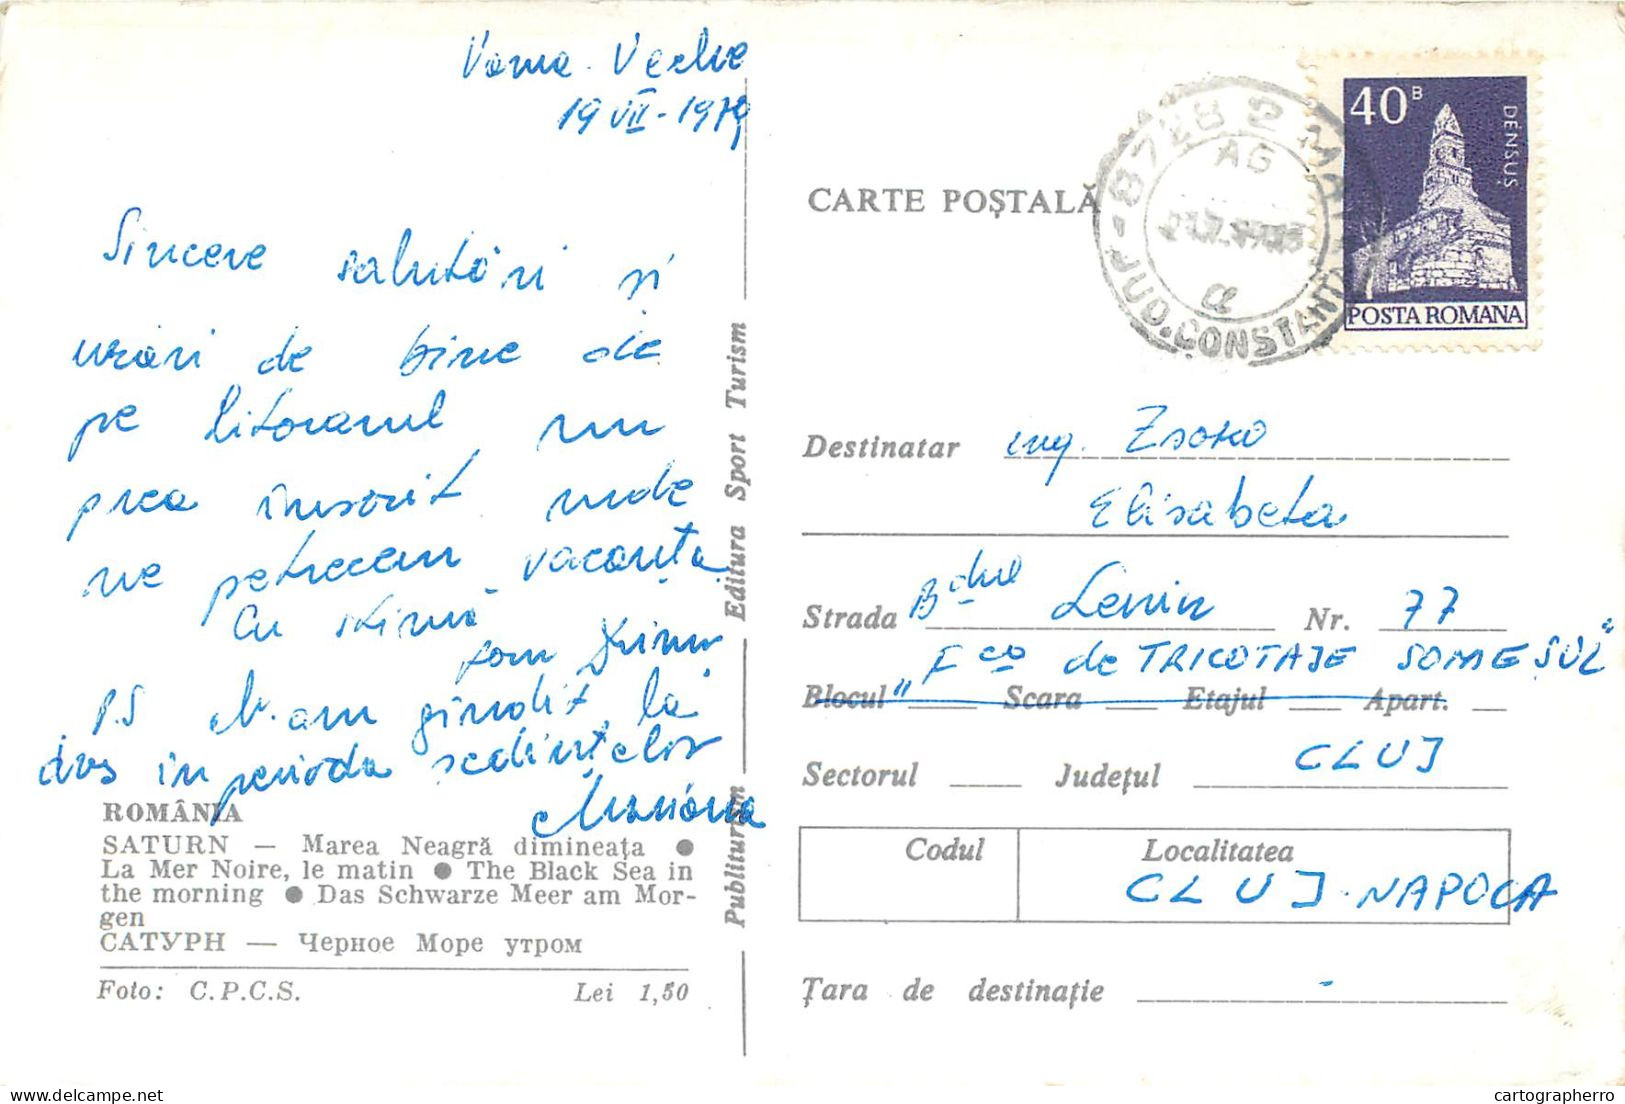 Vama Veche
19 VII - 1979
Sincere salutări și
urări de bine de
pe litoralul nu
prea însorit unde
ne petrecem vacanța
Cu stimă
fam
PS M-am gîndit la
dvs in perioda sedințelor
Mariana
ROMÂNIA
SATURN — Marea Neagră dimineața ●
La Mer Noire, le matin ● The Black Sea in
the morning ● Das Schwarze Meer am Mor-
gen
САТУРН — Черное Море утром
Foto: C.P.C.S. Lei 1,50
Publiturism Editura Sport Turism
CARTE POȘTALĂ
40 B
DENSUȘ
POSTA ROMANA
AG
JUD. CONSTANȚA
a
Destinatar ing. Zsoko
Elisabeta
Strada Bdul Lenin Nr. 77
"Fca de TRICOTAJE SOMEȘUL"
Blocul Scara Etajul Apart.
CLUJ
Sectorul Județul
Codul Localitatea
CLUJ-NAPOCA
Țara de destinație -
cartographerro